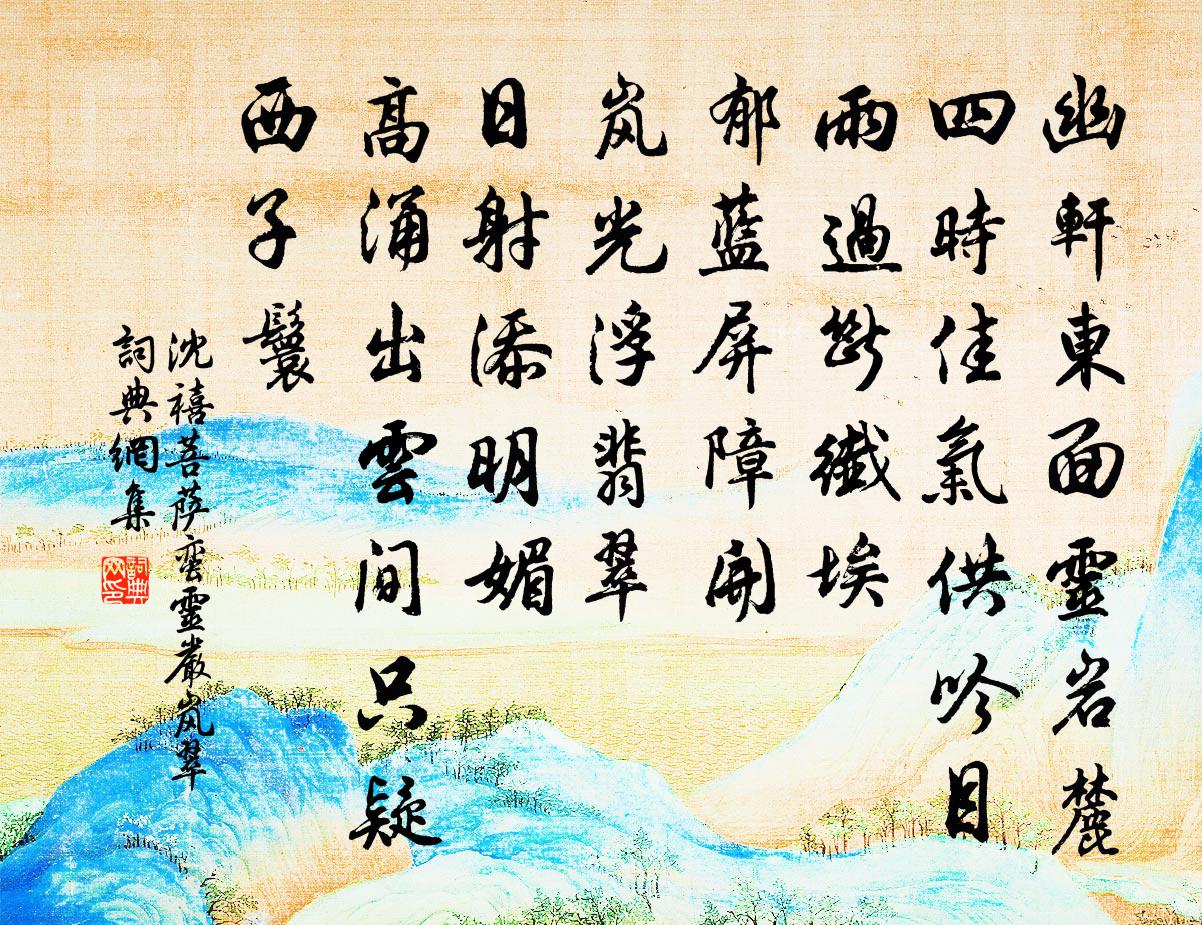 幽軒東面靈岩麓
四時佳氣供吟目
雨過斷纖埃
郁藍屏障開
岚光浮翡翠
日射添明媚
高涌出雲間只疑
西子鬟
沈禧菩萨蛮靈巖岚翠
詞典網集
詞典網印